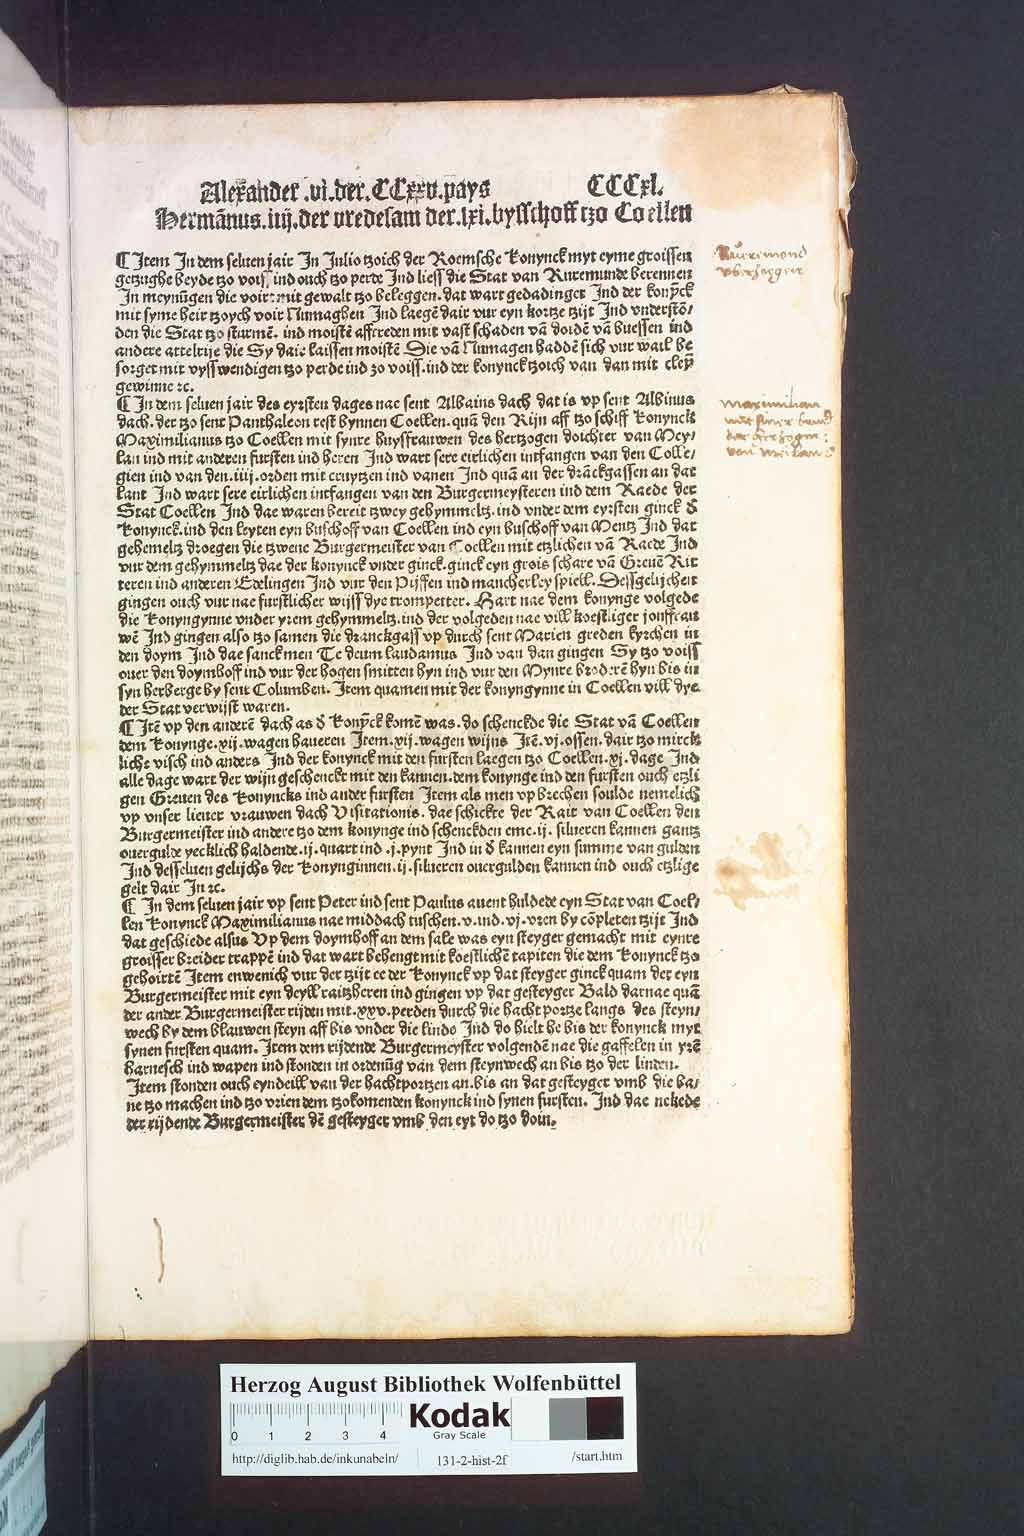 Alexander .vi.der.CCxxv.pays CCCxl.
Hermānus.iiij.der vredesam der.lxi.bysschoff tzo Coellen
¶ Item In dem seluen jair In Julio tzoich der Roemsche Konynck myt eyme groissen
getzughe beyde tzo voiss ind ouch tzo perde Ind liess die Stat van Ruremunde berennen
In meynūgen die voirs mit gewalt tzo beleggen. dat wart gedadinget Ind der konȳck
mit syme heir tzoych voir Numaghen Ind laegē dair vur eyn kortze tzijt Ind vnderstō/
den die Stat tzo sturmē. ind moistē affcreden mit vast schaden vā doidē vā buessen ind
andere artelrije die Sy dair laissen moistē Die vā Numagen haddē sich vur wail be
sorget mit vysswendigen tzo perde ind zo voiss.ind der konynck tzoich van dan mit cleȳ
gewinne ⁊c.
¶ In dem seluen jair des eyrsten dages nae sent Albains dach dat is vp sent Albinus
dach. der tzo sent Panthaleon rest bynnen Coellen. quā den Rijn aff tzo schiff Konynck
Maximilianus tzo Coellen mit synre huysfrauwen des hertzogen doichter van Mey/
lan ind mit anderen fursten ind heren Ind wart sere eirlichen intfangen van den Colle/
gien ind van den.iiij.orden mit cruytzen ind vanen Ind quā an der drāckgassen an dat
lant Ind wart sere eirlichen intfangen van den Burgermeysteren ind dem Raede der
Stat Coellen Ind dae waren bereit tzwey gehymmeltz. ind vnder dem eyrsten ginck d̄
Konynck.ind den leyten eyn buschoff van Coellen ind eyn buschoff van Mentz Ind dat
gehemeltz droegen die tzwene Burgermeister van Coellen mit etzlichen vā Raede Ind
vur dem gehymmeltz dae der konynck vnder ginck. ginck eyn grois schare vā Greuē Rit
teren ind anderen Edelingen Ind vur den Pijffen ind mancherley spiell. Dessgelijchen
gingen ouch vur nae furstlicher wijss dye trompetter. Hart nae dem konynge volgede
die Konyngynne vnder yrem gehymmeltz.ind der volgeden nae vill koestliger jonffrau
wē Ind gingen also tzo samen die dranckgass vp durch sent Marien greden kyrchen in
den doym Ind dae sanck men Te deum laudamus Ind van dan gingen Sy tzo voiss
ouer den doymhoff ind vur der hogen smitten hyn ind vur den Mynre broderē hyn bis in
syn herberge by sent Columben. Item quamen mit der konyngynne in Coellen vill dye
der Stat verwijst waren.
¶ Itē vp den anderē dach as d̄ Konȳck komē was. do schenckde die Stat vā Coellen
dem Konynge.xij.wagen haueren Item.xij.wagen wijns Itē.vj.ossen.dair tzo mirck
liche visch ind anders Ind der konynck mit den fursten laegen tzo Coellen.xj.dage Ind
alle dage wart der wijn geschenckt mit den kannen.dem konynge ind den fursten ouch etzli
gen Greuen des Konyncks ind ander fursten Item als men vp brechen soulde nemelich
vp vnser lieuer vrauwen dach Visitationis. dae schickte der Rait van Coellen den
Burgermeister ind andere tzo dem konynge ind schenckden eme.ij. silueren kannen gantz
ouergulde yecklich haldende.ij.quart ind.j.pynt Ind in d̄ kannen eyn summe van gulden
Ind desseluen gelijchs der Konynginnen.ij.silueren ouergulden kannen ind ouch etzlige
gelt dair In ⁊c.
¶ In dem seluen jair vp sent Peter ind sent Paulus auent huldede eyn Stat van Coel/
len Konynck Maximilianus nae middach tuschen.v.ind.vj.vren by cōpleten tzijt Ind
dat geschiede alsus Vp dem doymhoff an dem sale was eyn steyger gemacht mit eynre
groisser breider trappē ind dat wart behengt mit koestlichē tapiten die dem Konynck tzo
gehoirtē Item enwenich vur der tzijt ee der Konynck vp dat steyger ginck quam der eyn
Burgermeister mit eyn deyll raitzheren ind gingen vp dat gesteyger Bald darnae quā
der ander Burgermeister rijden mit.xxv.perden durch die hacht portze langs des steyn/
wech by dem blauwen steyn aff bis vnder die linde Ind do hielt he bis der konynck myt
synen fursten quam. Item dem rijdende Burgermeyster volgendē nae die gaffelen in yrē
harnesch ind wapen ind stonden in ordenūg van dem steynwech an bis tzo der linden.
Item stonden ouch eyndeill van der hachtportzen an.bis an dat gesteyger vmb die ba/
ne tzo machen ind tzo vrien dem tzokomenden konynck ind synen fursten. Ind dae neckede
der rijdende Burgermeister dē gesteyger vmb den eyt do tzo doin.
Ruremond
vberzogen
Maximilian
von Meiland
Herzog August Bibliothek Wolfenbüttel
0 1 2 3 4
Kodak
Gray Scale
http://diglib.hab.de/inkunabeln/ 131-2-hist-2f /start.htm